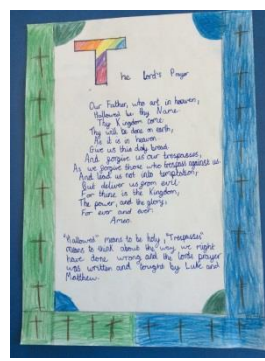 The Lord's Prayer
Our Father, who art in heaven,
Hallowed be thy Name.
Thy Kingdom come.
Thy will be done on earth,
As it is in heaven.
Give us this day bread.
And forgive us our trespasses,
As we forgive those who trespass against us.
And lead us not into temptation,
But deliver us from evil.
For thine is the Kingdom,
The power, and the glory,
For ever and ever.
Amen.
"Hallowed" means to be holy, "Trespasses"
means to think about the way we might
have done wrong and the lords prayer
was written and tought by Luke and
Matthew.